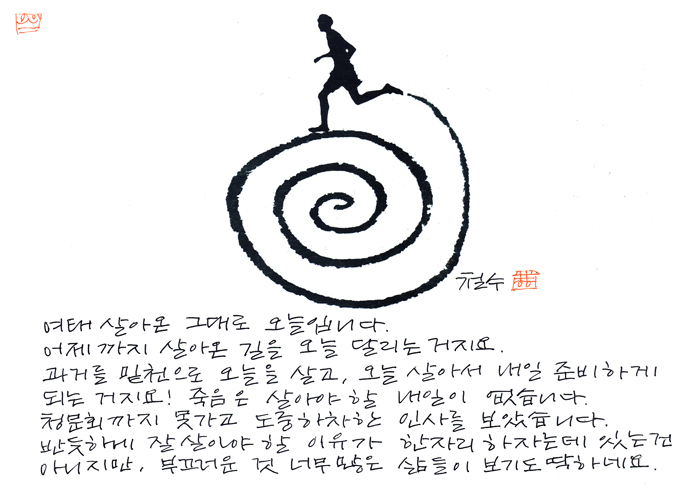 철수
여태 살아온 그대로 오늘입니다.
어제까지 살아온 길을 오늘 달리는 거지요.
과거를 밑천으로 오늘을 살고, 오늘 살아서 내일 준비하게
되는 거지요! 죽음은 살아야 할 내일이 없습니다.
청문회까지 못가고 도중하차한 인사를 보았습니다.
반듯하게 잘 살아야 할 이유가 한자리 하자는데 있는건
아니지만, 부끄러운 것 너무 많은 삶들이 보기도 딱하네요.